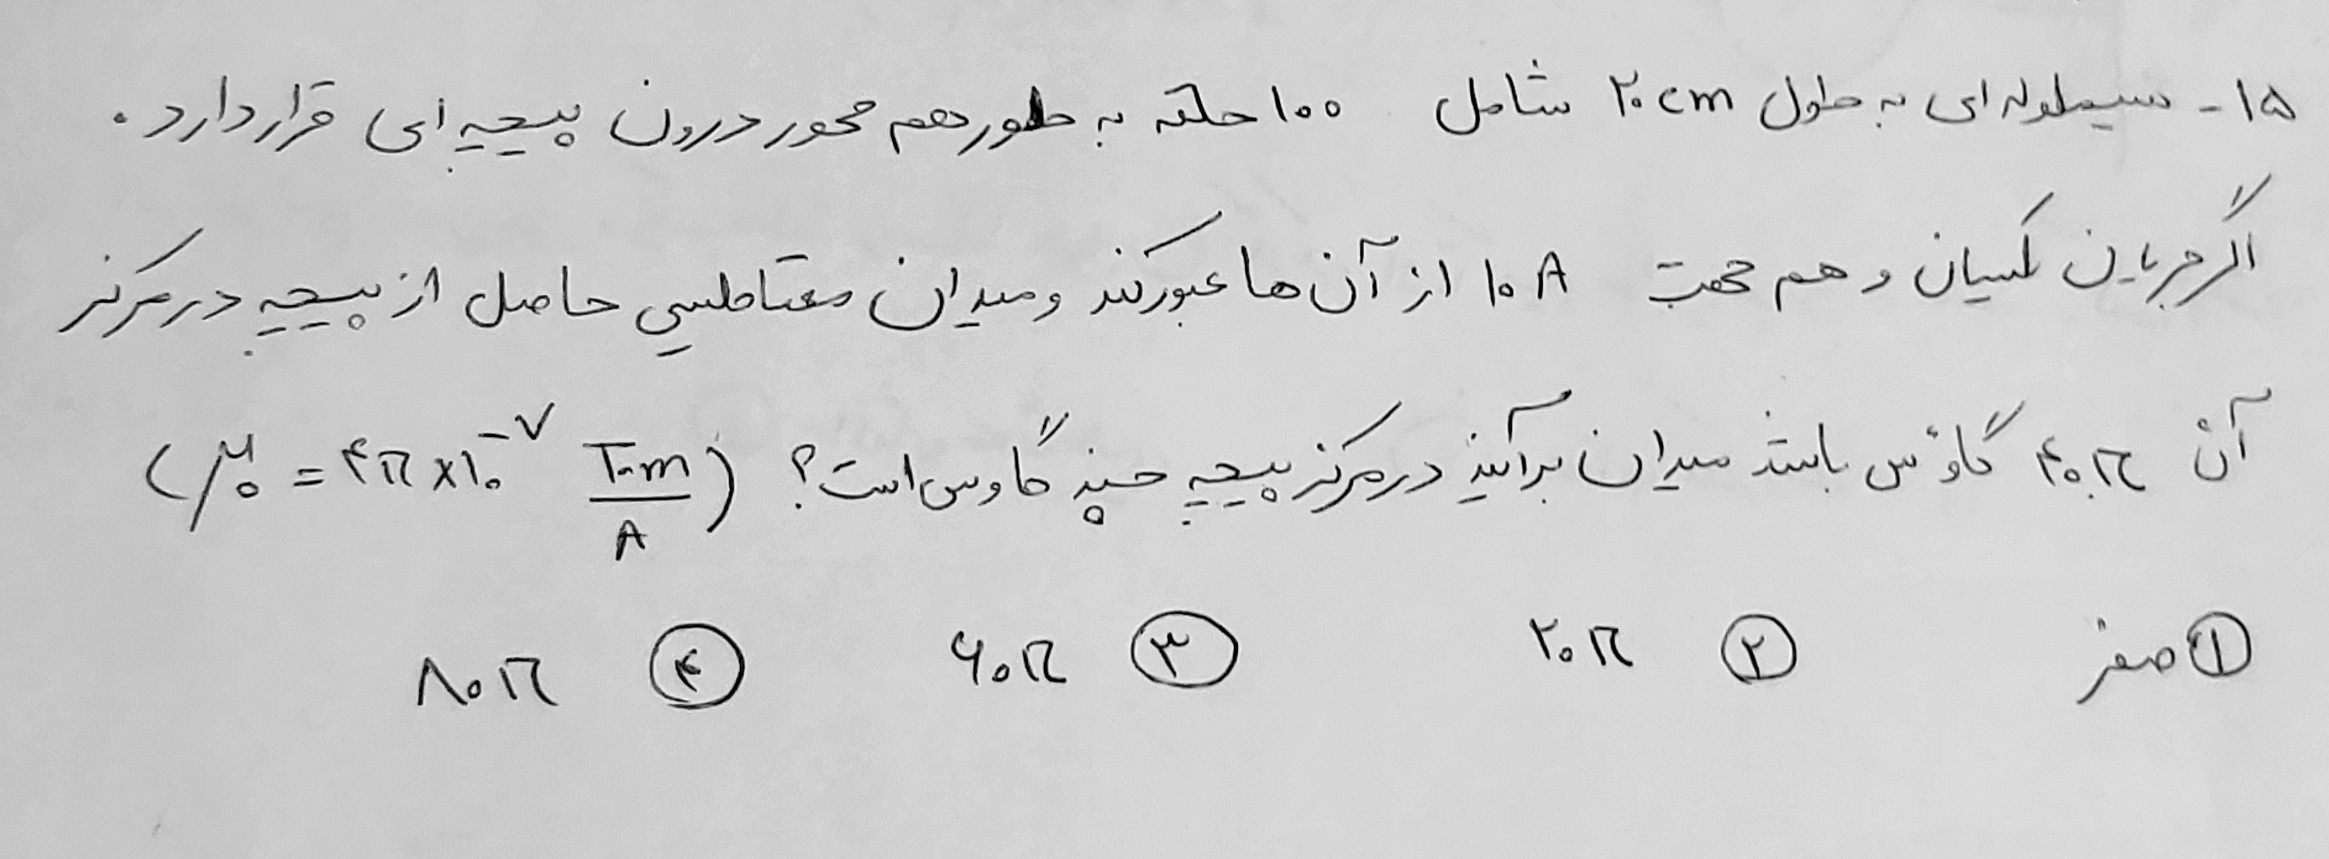 ۱۵- سیملوله ای به طول ۲۰cm شامل ۱۰۰ حلقه به طور هم محور درون پیچه ای قرار دارد.
اگر جریان یکسان و هم جهت ۱۰A از آن ها عبور کند و میدان مغناطیسی حاصل از پیچه در مرکز
آن ۴۰π گاوس باشد میدان برآیند در مرکز پیچه چند گاوس است؟ (μ₀ = ۴π×۱۰⁻⁷ T.m/A)
① صفر ② ۲۰π ③ ۶۰π ④ ۸۰π